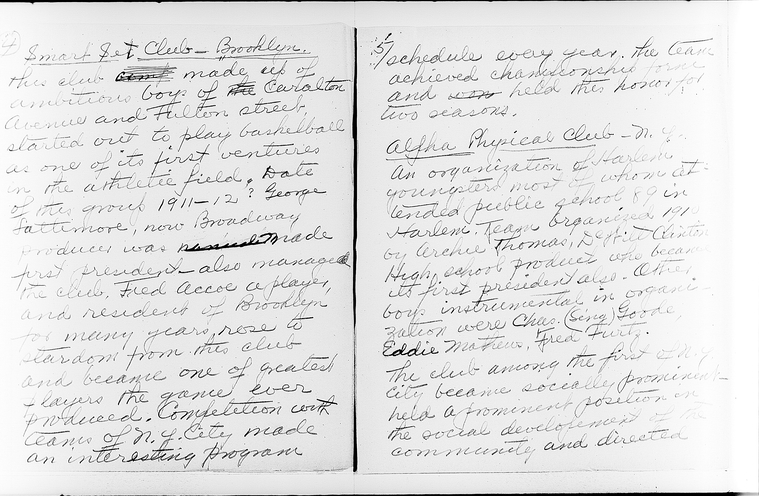 4)
Smart Set Club – Brooklyn.
This club made up of
ambitious boys of the Carolton
Avenue and Fulton street,
started out to play basketball
as one of its first ventures
in the athletic field. Date
of this group 1911-12? George
Lattimore, now Broadway
producer was made
first president – also managed
the club. Fred Accoe a player,
and resident of Brooklyn
for many years, rose to
stardom from this club
and became one of greatest
players the game ever
produced. Competition with
teams of N.Y. City made
an interesting program
5/ schedule every year. The team
achieved championship form
and won held this honor for
two seasons.
Alpha Physical Club – N.Y.
An organization of Harlem
youngsters most of whom at-
tended public school 89 in
Harlem. Team organized
by Archie Thomas, DeWitt Clinton
High, school product who became
its first president also. Other
boys instrumental in organi-
zation were Chas. (Sing) Goode,
Eddie Mathews, Fred
The club among the first of N.Y.
City became socially prominent
held a prominent position in
the social developement of the
community and directed